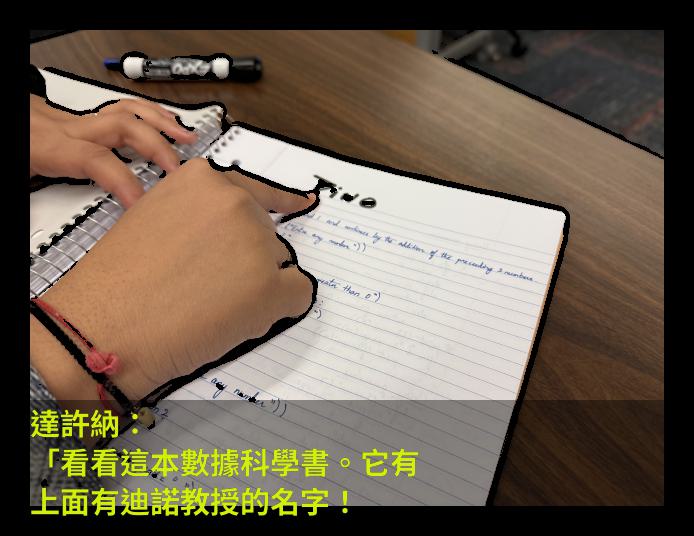 Dino
and continues by the addition of the preceding 2 numbers
any number "))
than 0")
any number "))
達許納：
「看看這本數據科學書。它有
上面有迪諾教授的名字！